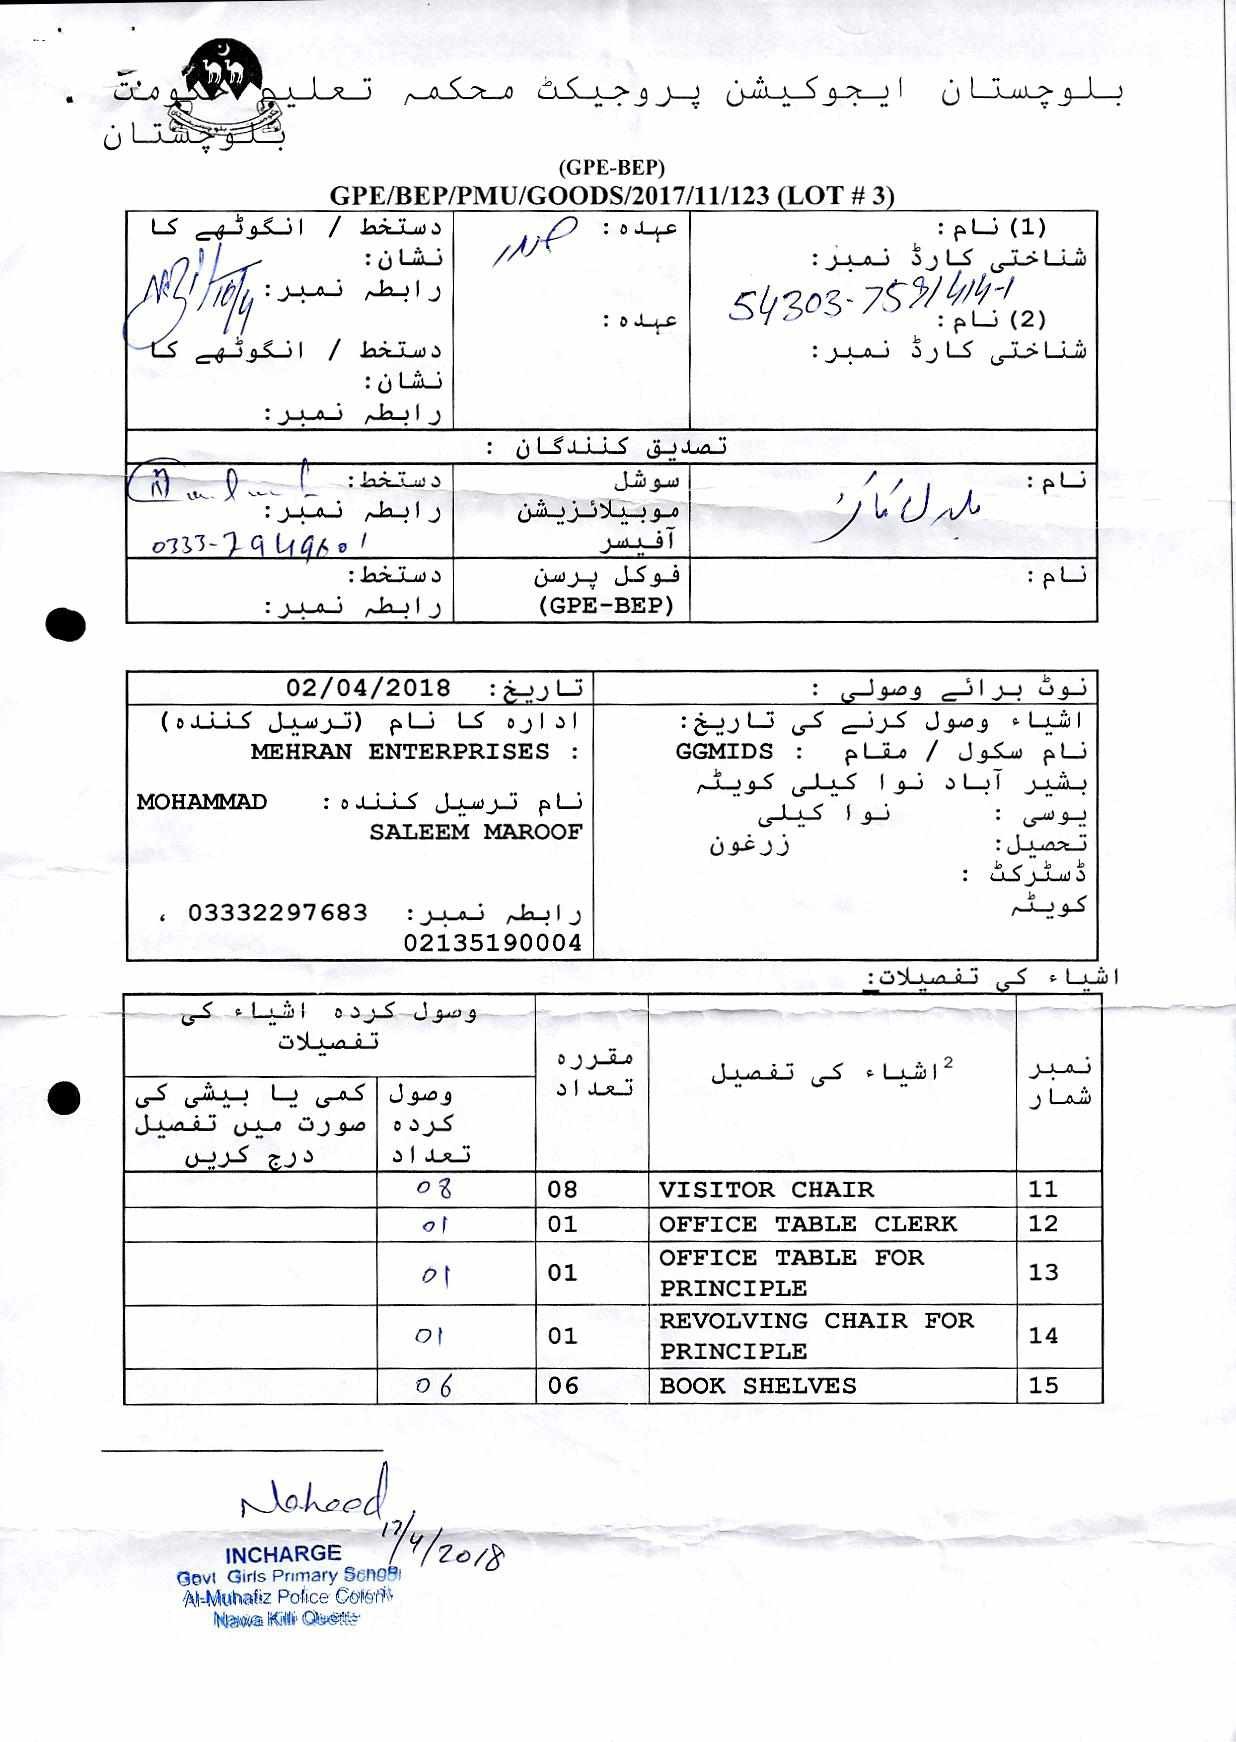 بلوچستان ایجوکیشن پروجیکٹ محکمہ تعلیم حکومت
بلوچستان
(GPE-BEP)
GPE/BEP/PMU/GOODS/2017/11/123 (LOT # 3)
(1) نام:
شناختی کارڈ نمبر:
54303-7591414-1
(2) نام:
شناختی کارڈ نمبر:
عہدہ:
عہدہ:
دستخط / انگوٹھے کا
نشان:
رابطہ نمبر:
دستخط / انگوٹھے کا
نشان:
رابطہ نمبر:
تصدیق کنندگان :
نام:
سوشل
موبیلائزیشن
آفیسر
دستخط:
رابطہ نمبر:
0333-7949601
نام:
فوکل پرسن
(GPE-BEP)
دستخط:
رابطہ نمبر:
نوٹ برائے وصولی :
تاریخ: 02/04/2018
اشیاء وصول کرنے کی تاریخ:
نام سکول / مقام : GGMIDS
بشیر آباد نوا کیلی کویٹہ
یوسی : نوا کیلی
تحصیل: زرغون
ڈسٹرکٹ :
کویٹہ
ادارہ کا نام (ترسیل کنندہ)
: MEHRAN ENTERPRISES
نام ترسیل کنندہ: MOHAMMAD
SALEEM MAROOF
رابطہ نمبر: 03332297683 ،
02135190004
اشیاء کی تفصیلات:
نمبر
شمار
2اشیاء کی تفصیل
مقررہ
تعداد
وصول کردہ اشیاء کی
تفصیلات
وصول
کردہ
تعداد
کمی یا بیشی کی
صورت میں تفصیل
درج کریں
11 VISITOR CHAIR 08 08
12 OFFICE TABLE CLERK 01 01
13 OFFICE TABLE FOR
PRINCIPLE 01 01
14 REVOLVING CHAIR FOR
PRINCIPLE 01 01
15 BOOK SHELVES 06 06
Naheed
17/4/2018
INCHARGE
Govt Girls Primary School
Al-Muhafiz Police Colony
Nawa Killi Quetta